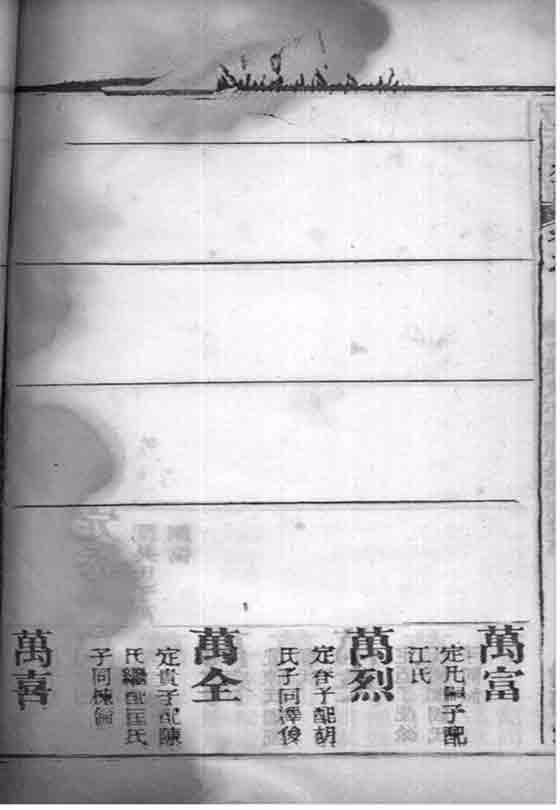 萬富
定凡嗣子配
江氏
萬烈
定春子配胡
氏子同澤俊
萬全
定貴子配陳
氏繼配匡氏
子同棟
萬喜